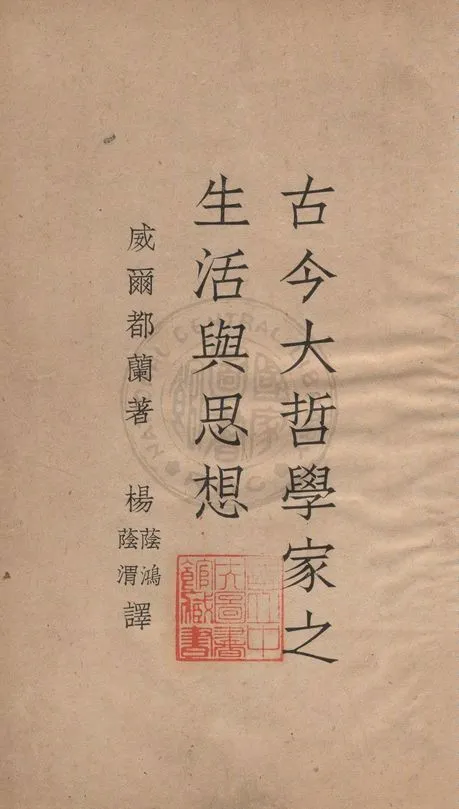 古今大哲學家之
生活與思想
威爾都蘭著 楊蔭鴻 蔭渭 譯
國立中
央圖書
館藏書